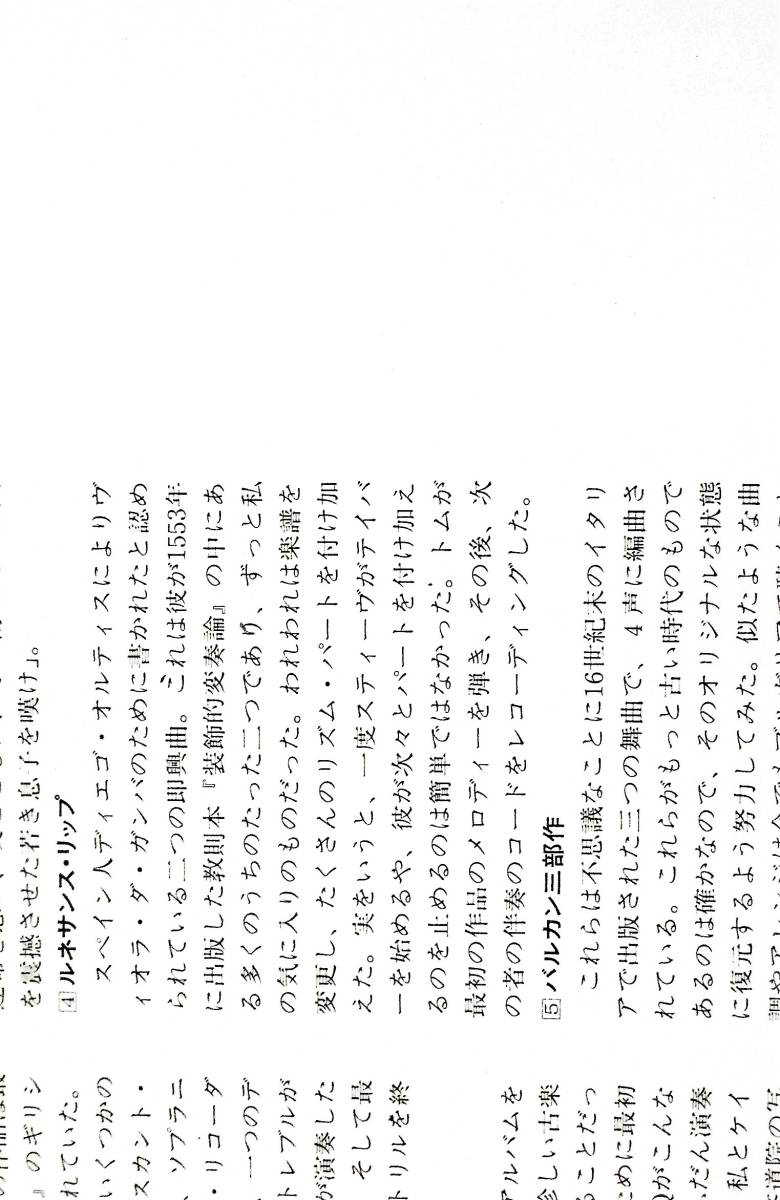 』のギリシ
れていた。
いくつかの
スカント・
、ソプラニ
・リコーダ
、一つのデ
トレブルが
が演奏した
そして最
トリルを終
アルバムを
珍しい古楽
ることだっ
めに最初
がこんな
だん演奏
私とケイ
を震撼させた若き息子を嘆け」。
4 ルネサンス・リップ
スペイン人ディエゴ・オルティスによりヴ
ィオラ・ダ・ガンバのために書かれたと認め
られている二つの即興曲。これは彼が1553年
に出版した教則本『装飾的変奏論』の中にあ
る多くのうちのたった二つであり、ずっと私
の気に入りのものだった。われわれは楽譜を
変更し、たくさんのリズム・パートを付け加
えた。実をいうと、一度スティーヴがテイバ
ーを始めるや、彼が次々とパートを付け加え
るのを止めるのは簡単ではなかった。トムが
最初の作品のメロディーを弾き、その後、次
の者の伴奏のコードをレコーディングした。
5 バルカン三部作
これらは不思議なことに16世紀末のイタリ
アで出版された三つの舞曲で、4声に編曲さ
れている。これらがもっと古い時代のもので
あるのは確かなので、そのオリジナルな状態
に復元するよう努力してみた。似たような曲